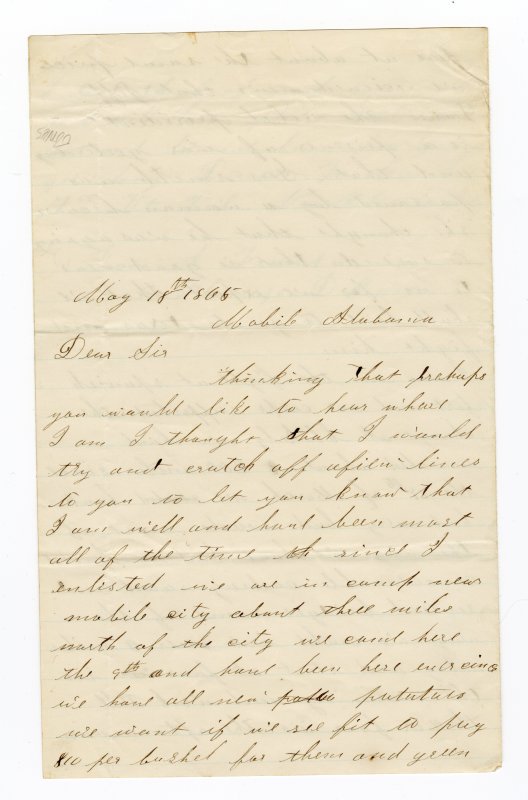 May 18th 1865
Mobile Alabama
Dear Sir
thinking that prehaps
you would like to hear whare
I am I thought that I would
try and cratch off afiew lines
to you to let you know that
I am well and have been most
all of the time th since I
enlisted we are in camp near
mobile city about three miles
north of the city we camd here
the 9th and have been here ever cince
we have all new potatoes
we want if we see fit to pay
per bushel for them and green